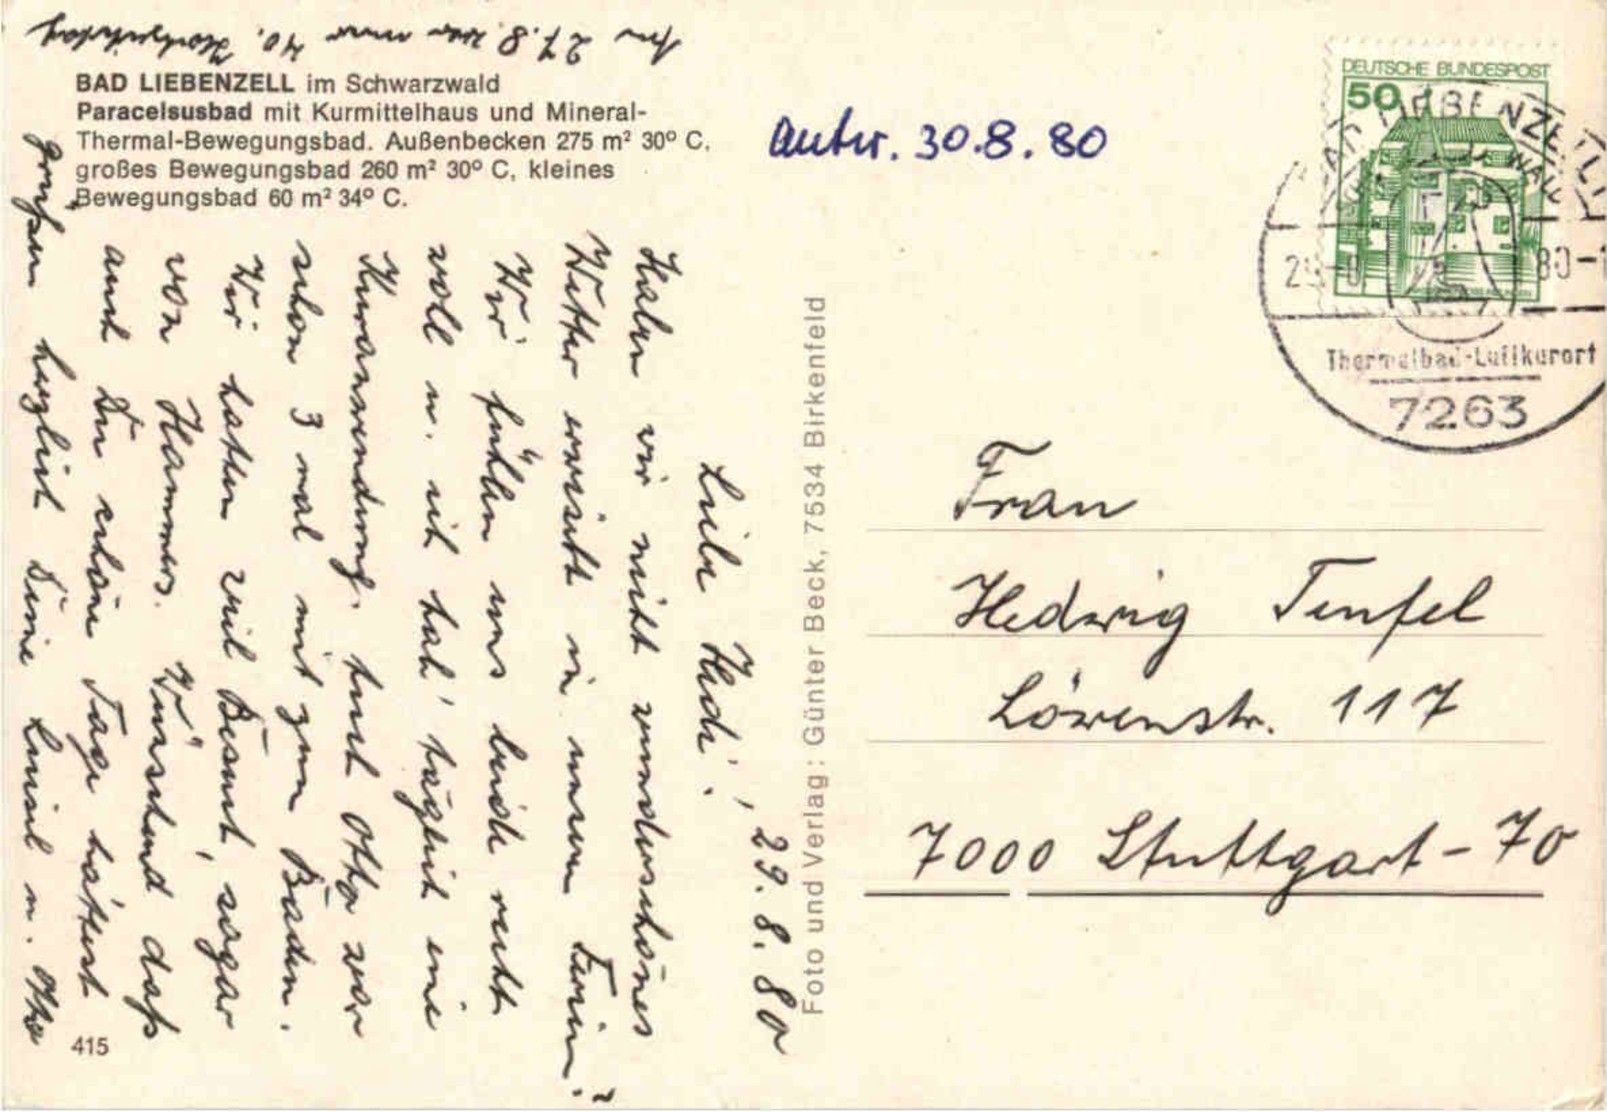 BAD LIEBENZELL im Schwarzwald
Paracelsusbad mit Kurmittelhaus und Mineral-
Thermal-Bewegungsbad. Außenbecken 275 m² 30° C,
großes Bewegungsbad 260 m² 30° C, kleines
Bewegungsbad 60 m² 34° C.
antw. 30.8.80
DEUTSCHE BUNDESPOST
50
BAD LIEBENZELL
80-1
Thermalbad-Luftkurort
7263
Frau
Hedwig Teufel
Löwenstr. 117
7000 Stuttgart-70
29.8.80
Liebe Hede!
Haben wir nicht wunderschönes
Wetter erwischt in unseren Ferien?
Wir fühlen uns beide recht
wohl u. ich hab' täglich eine
Kuranwendung. Auch Otto war
schon 3 mal mit zum Baden.
Wir hatten viel Besuch, sogar
von Hammers. Wünschend daß
auch Du schöne Tage hättest
grüßen herzlich Deine Luisl u. Otto
Am 27.8. war unser 40. Hochzeitstag
Foto und Verlag: Günter Beck, 7534 Birkenfeld
415